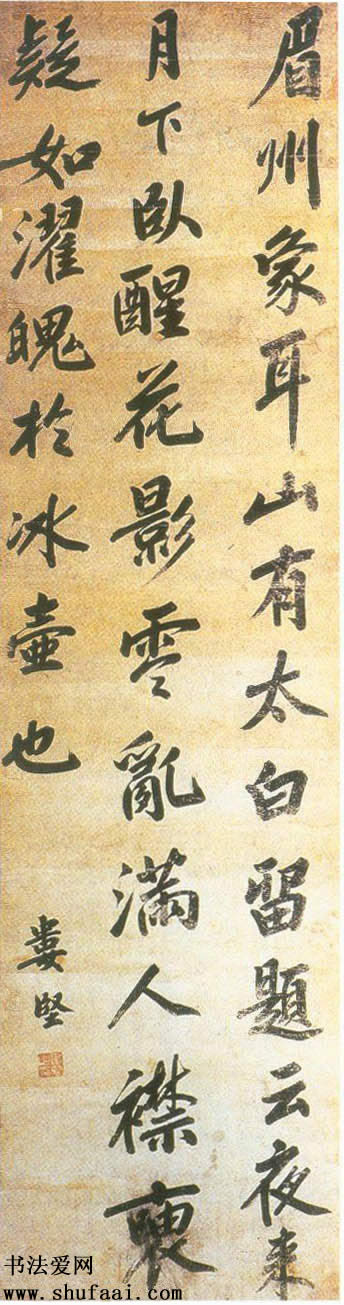 眉州象耳山有太白留題云夜来
月下臥醒花影零亂滿人襟褏
疑如濯魄於冰壺也
婁堅
书法爱网
www.shufaai.com